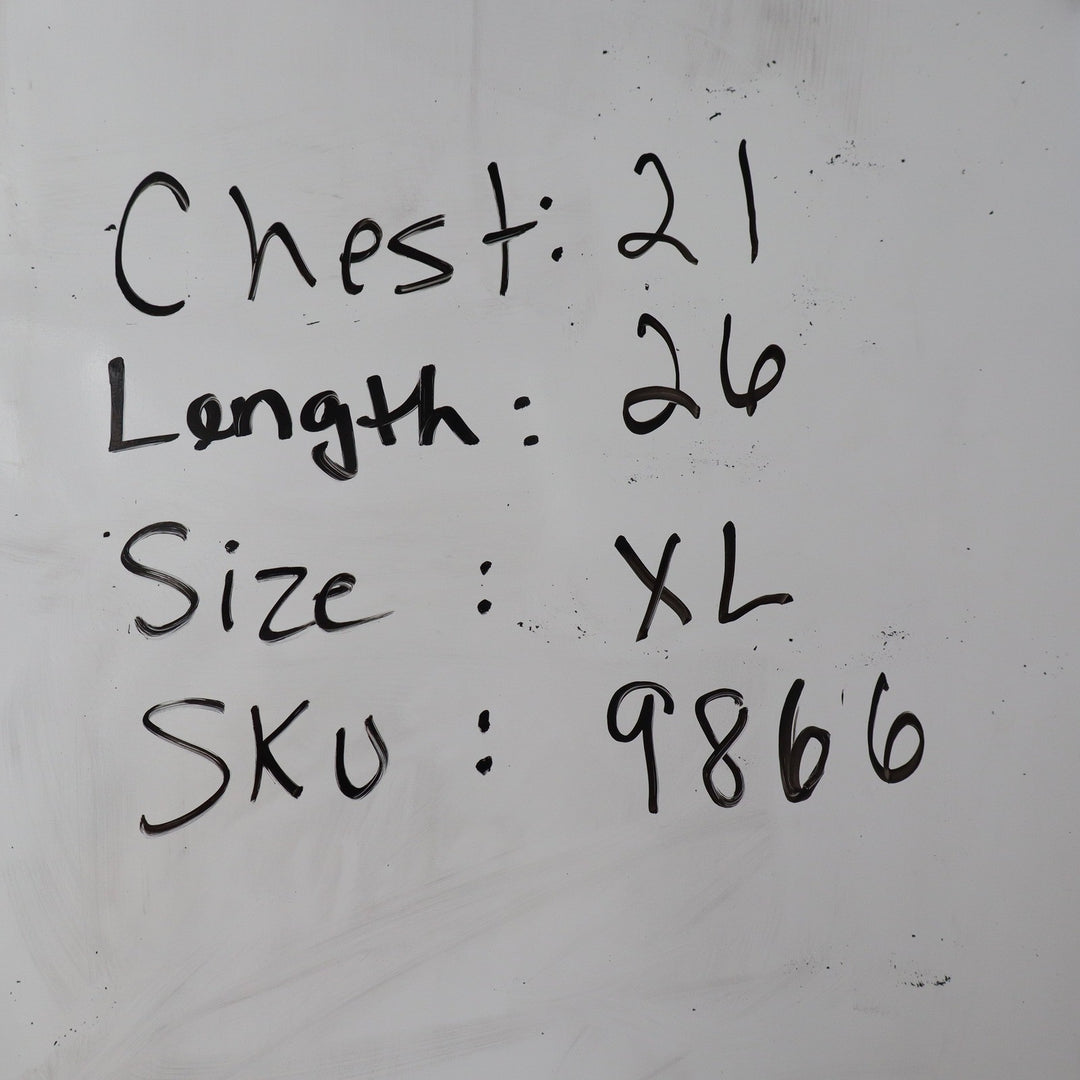 Chest: 21
Length: 26
Size: XL
SKU: 9866